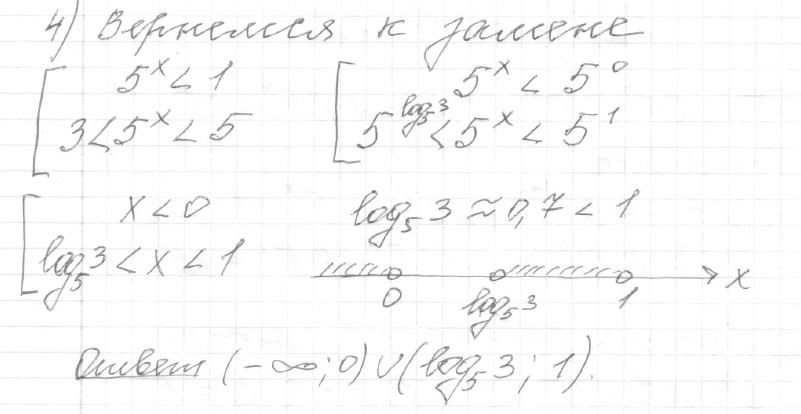 4) Вернемся к замене
[ 5^x < 1 [ 5^x < 5^0
3 < 5^x < 5 5^{log_5 3} < 5^x < 5^1
[ x < 0 log_5 3 ≈ 0,7 < 1
log_5 3 < x < 1
0 log_5 3 1 x
Ответ (-∞; 0) ∪ (log_5 3; 1).